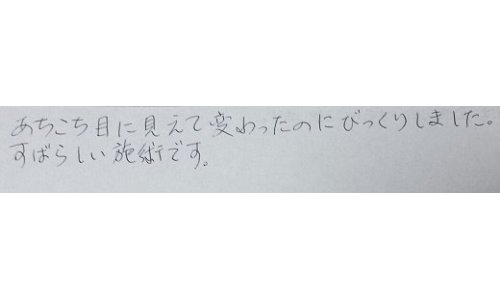 あちこち目に見えて変わったのにびっくりしました。
すばらしい施術です。